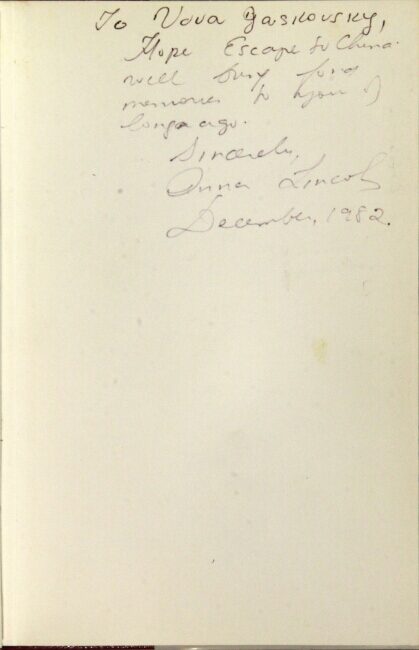 To Vova Yaskovsky,
Hope Escape to China
will bring fond
memories to you of
long ago.
Sincerely,
Anna Lincoln
December, 1982.